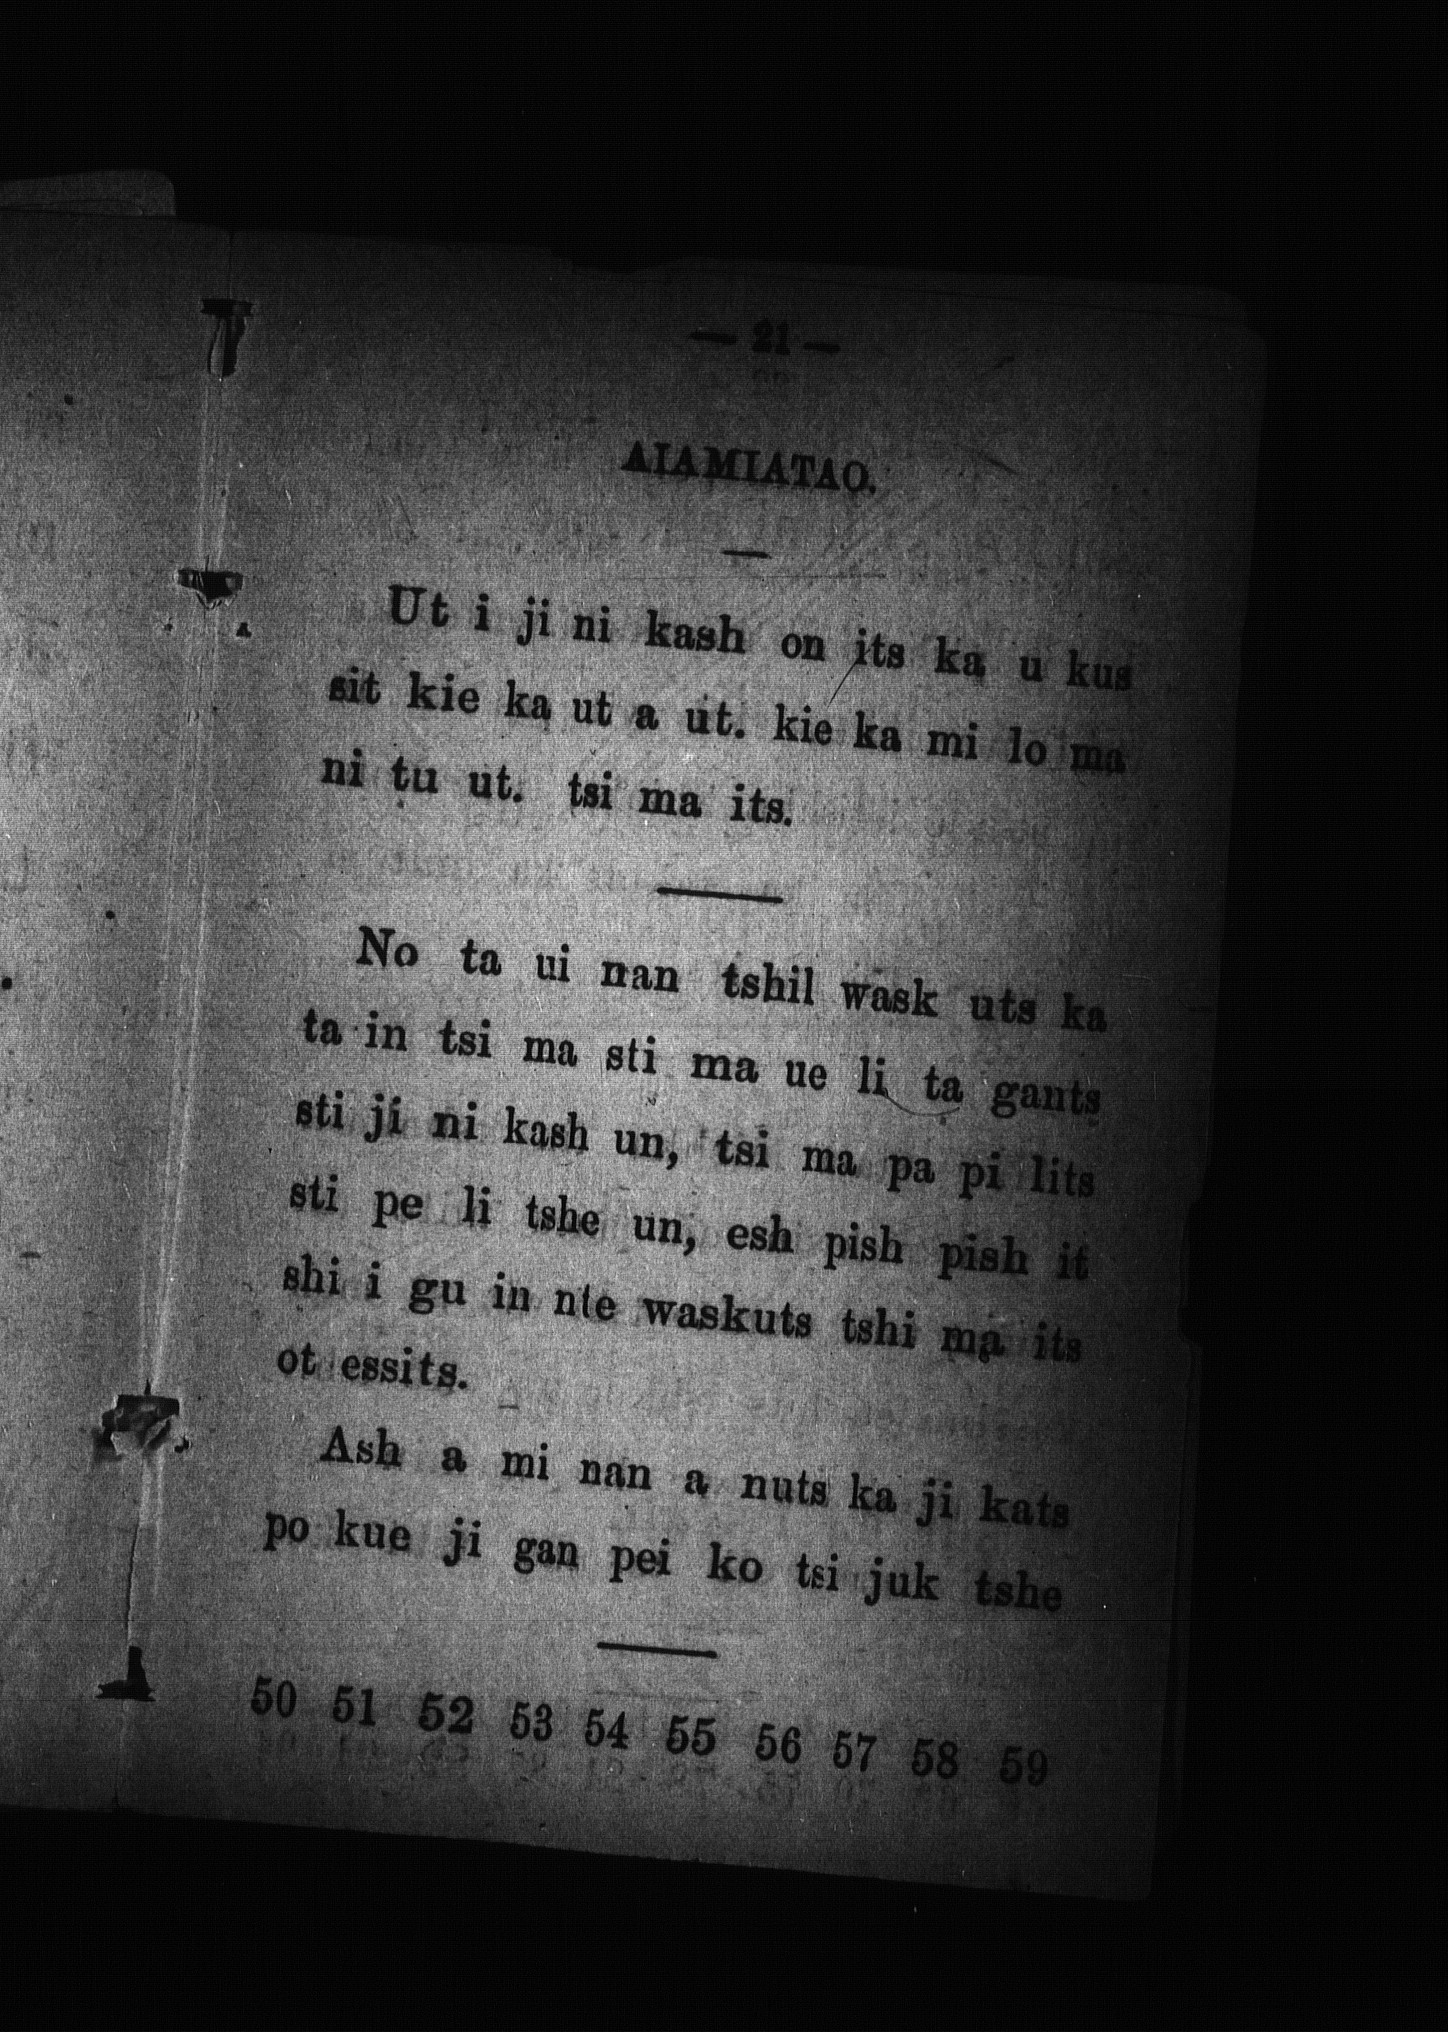 — 21 —
AIAMIATAO.
Ut i ji ni kash on its ka u kus
sit kie ka ut a ut. kie ka mi lo ma
ni tu ut. tsi ma its.
No ta ui nan tshil wask uts ka
ta in tsi ma sti ma ue li ta gants
sti ji ni kash un, tsi ma pa pi lits
sti pe li tshe un, esh pish pish it
shi i gu in nte waskuts tshi ma its
ot essits.
Ash a mi nan a nuts ka ji kats
po kue ji gan pei ko tsi juk tshe
50 51 52 53 54 55 56 57 58 59